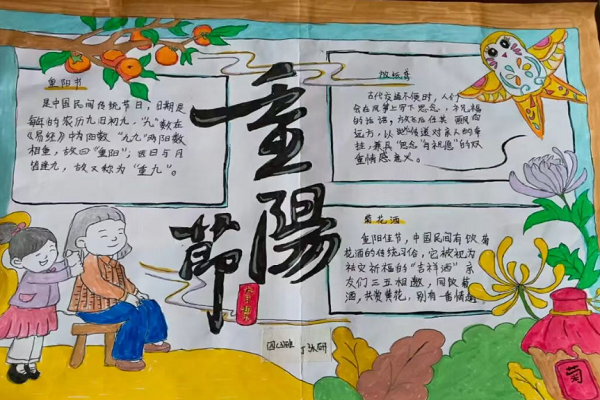 重陽節
重阳节
是中国民间传统节日,日期是
每年的农历九月初九。"九"数在
《易经》中为阳数,"九九"两阳数
相重,故曰"重阳";因日与月
皆逢九,故又称为"重九"。
放纸鸢
古代交通不便时,人们
会在风筝上写下思念、祝福
的话语,放飞后任其飘向
远方,以此传递对亲人的牵
挂,兼具"思念与祝愿"的双
重情感意义。
菊花酒
重阳佳节,中国民间有饮菊
花酒的传统习俗,它被视为
祛灾祈福的"吉祥酒"亲
友们三五相邀,同饮菊
酒,共赏黄花,别有一番情趣
菊